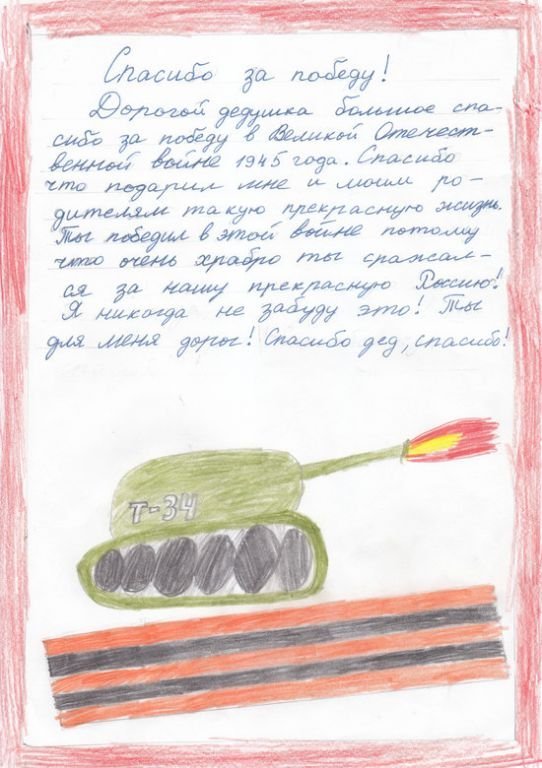 Спасибо за победу!
Дорогой дедушка большое спа-
сибо за победу в Великой Отечест-
венной войне 1945 года. Спасибо
что подарил мне и моим ро-
дителям такую прекрасную жизнь.
Ты победил в этой войне потому
что очень храбро ты сражал-
ся за нашу прекрасную Россию!
Я никогда не забуду это! Ты
для меня дорог! Спасибо дед, спасибо!
Т-34